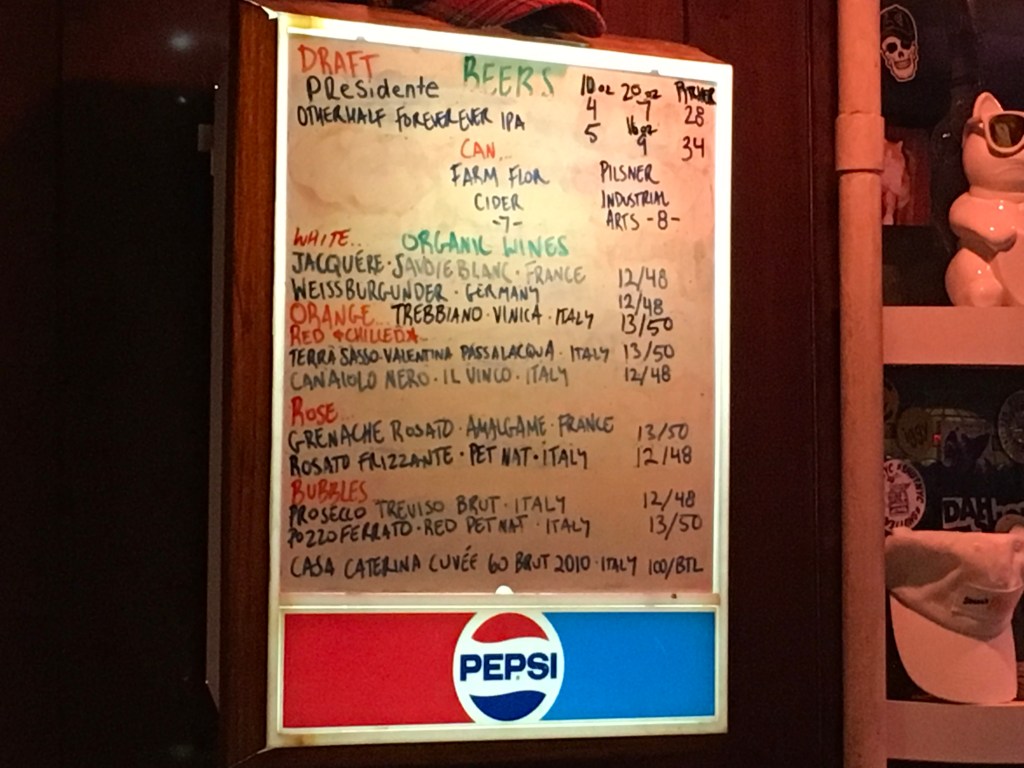 DRAFT BEERS 10 oz 20 oz PITCHER
PResidente 4 7 28
OTHERHALF FOREVER EVER IPA 5 16 oz 9 34
CAN...
FARM FLOR PILSNER
CIDER INDUSTRIAL
-7- ARTS -8-
WHITE... ORGANIC WINES
JACQUÉRE · SAVOIE BLANC · FRANCE 12/48
WEISSBURGUNDER · GERMANY 12/48
ORANGE... TREBBIANO · VINICA · ITALY 13/50
RED *CHILLED*
TERRA SASSO · VALENTINA PASSALACQUA · ITALY 13/50
CANAIOLO NERO · IL VINCO · ITALY 12/48
ROSE...
GRENACHE ROSATO · AMALGAME · FRANCE 13/50
ROSATO FRIZZANTE · PET NAT · ITALY 12/48
BUBBLES
PROSECCO TREVISO BRUT · ITALY 12/48
POZZO FERRATO · RED PET NAT · ITALY 13/50
CASA CATERINA CUVÉE 60 BRUT 2010 · ITALY 100/BTL
PEPSI